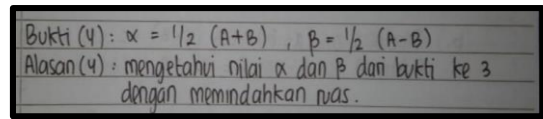 Bukti (4) : α = 1/2 (A+B) , β = 1/2 (A-B)
Alasan (4) : mengetahui nilai α dan β dari bukti ke 3
dengan memindahkan ruas.